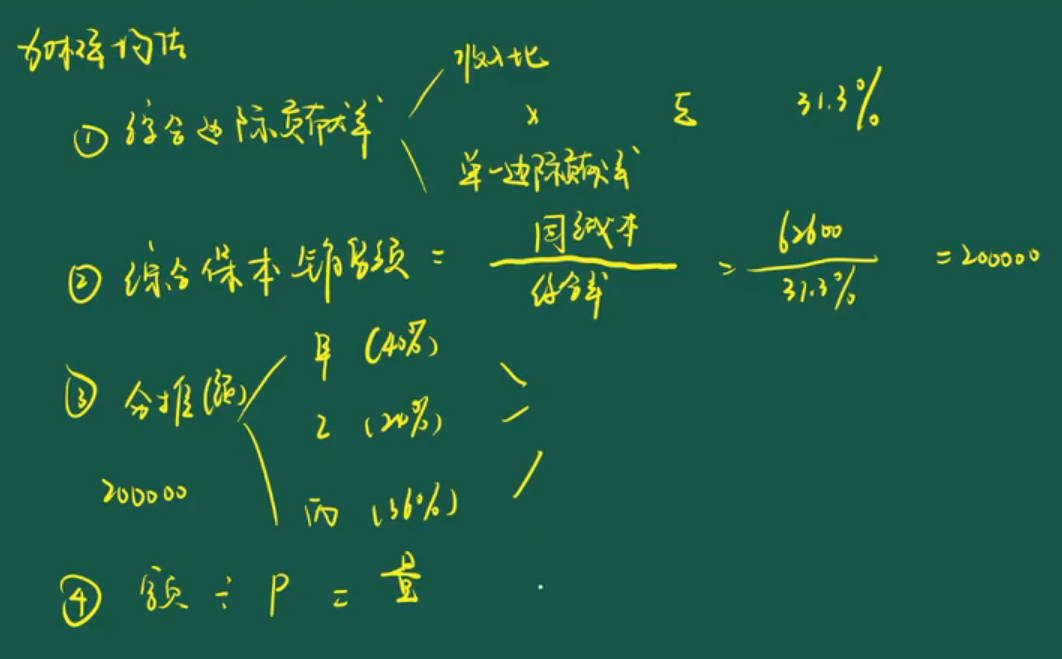 加权平均法
① 综合边际贡献率 收入比 × 单一边际贡献率 Σ 31.3%
② 综合保本销售额 = 固成本 / 综合率 = 62600 / 31.3% = 200000
③ 分摊(额) 甲 (40%)
乙 (24%)
200000
丙 (36%)
④ 额 ÷ P = 量